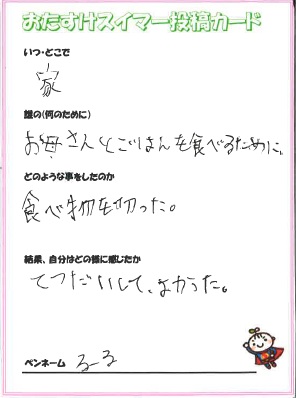 おたすけスイマー投稿カード
いつ・どこで
家
誰の(何のために)
お母さんとごはんを食べるために。
どのような事をしたのか
食べ物を切った。
結果、自分はどの様に感じたか
てつだいして、よかった。
ペンネーム るーる